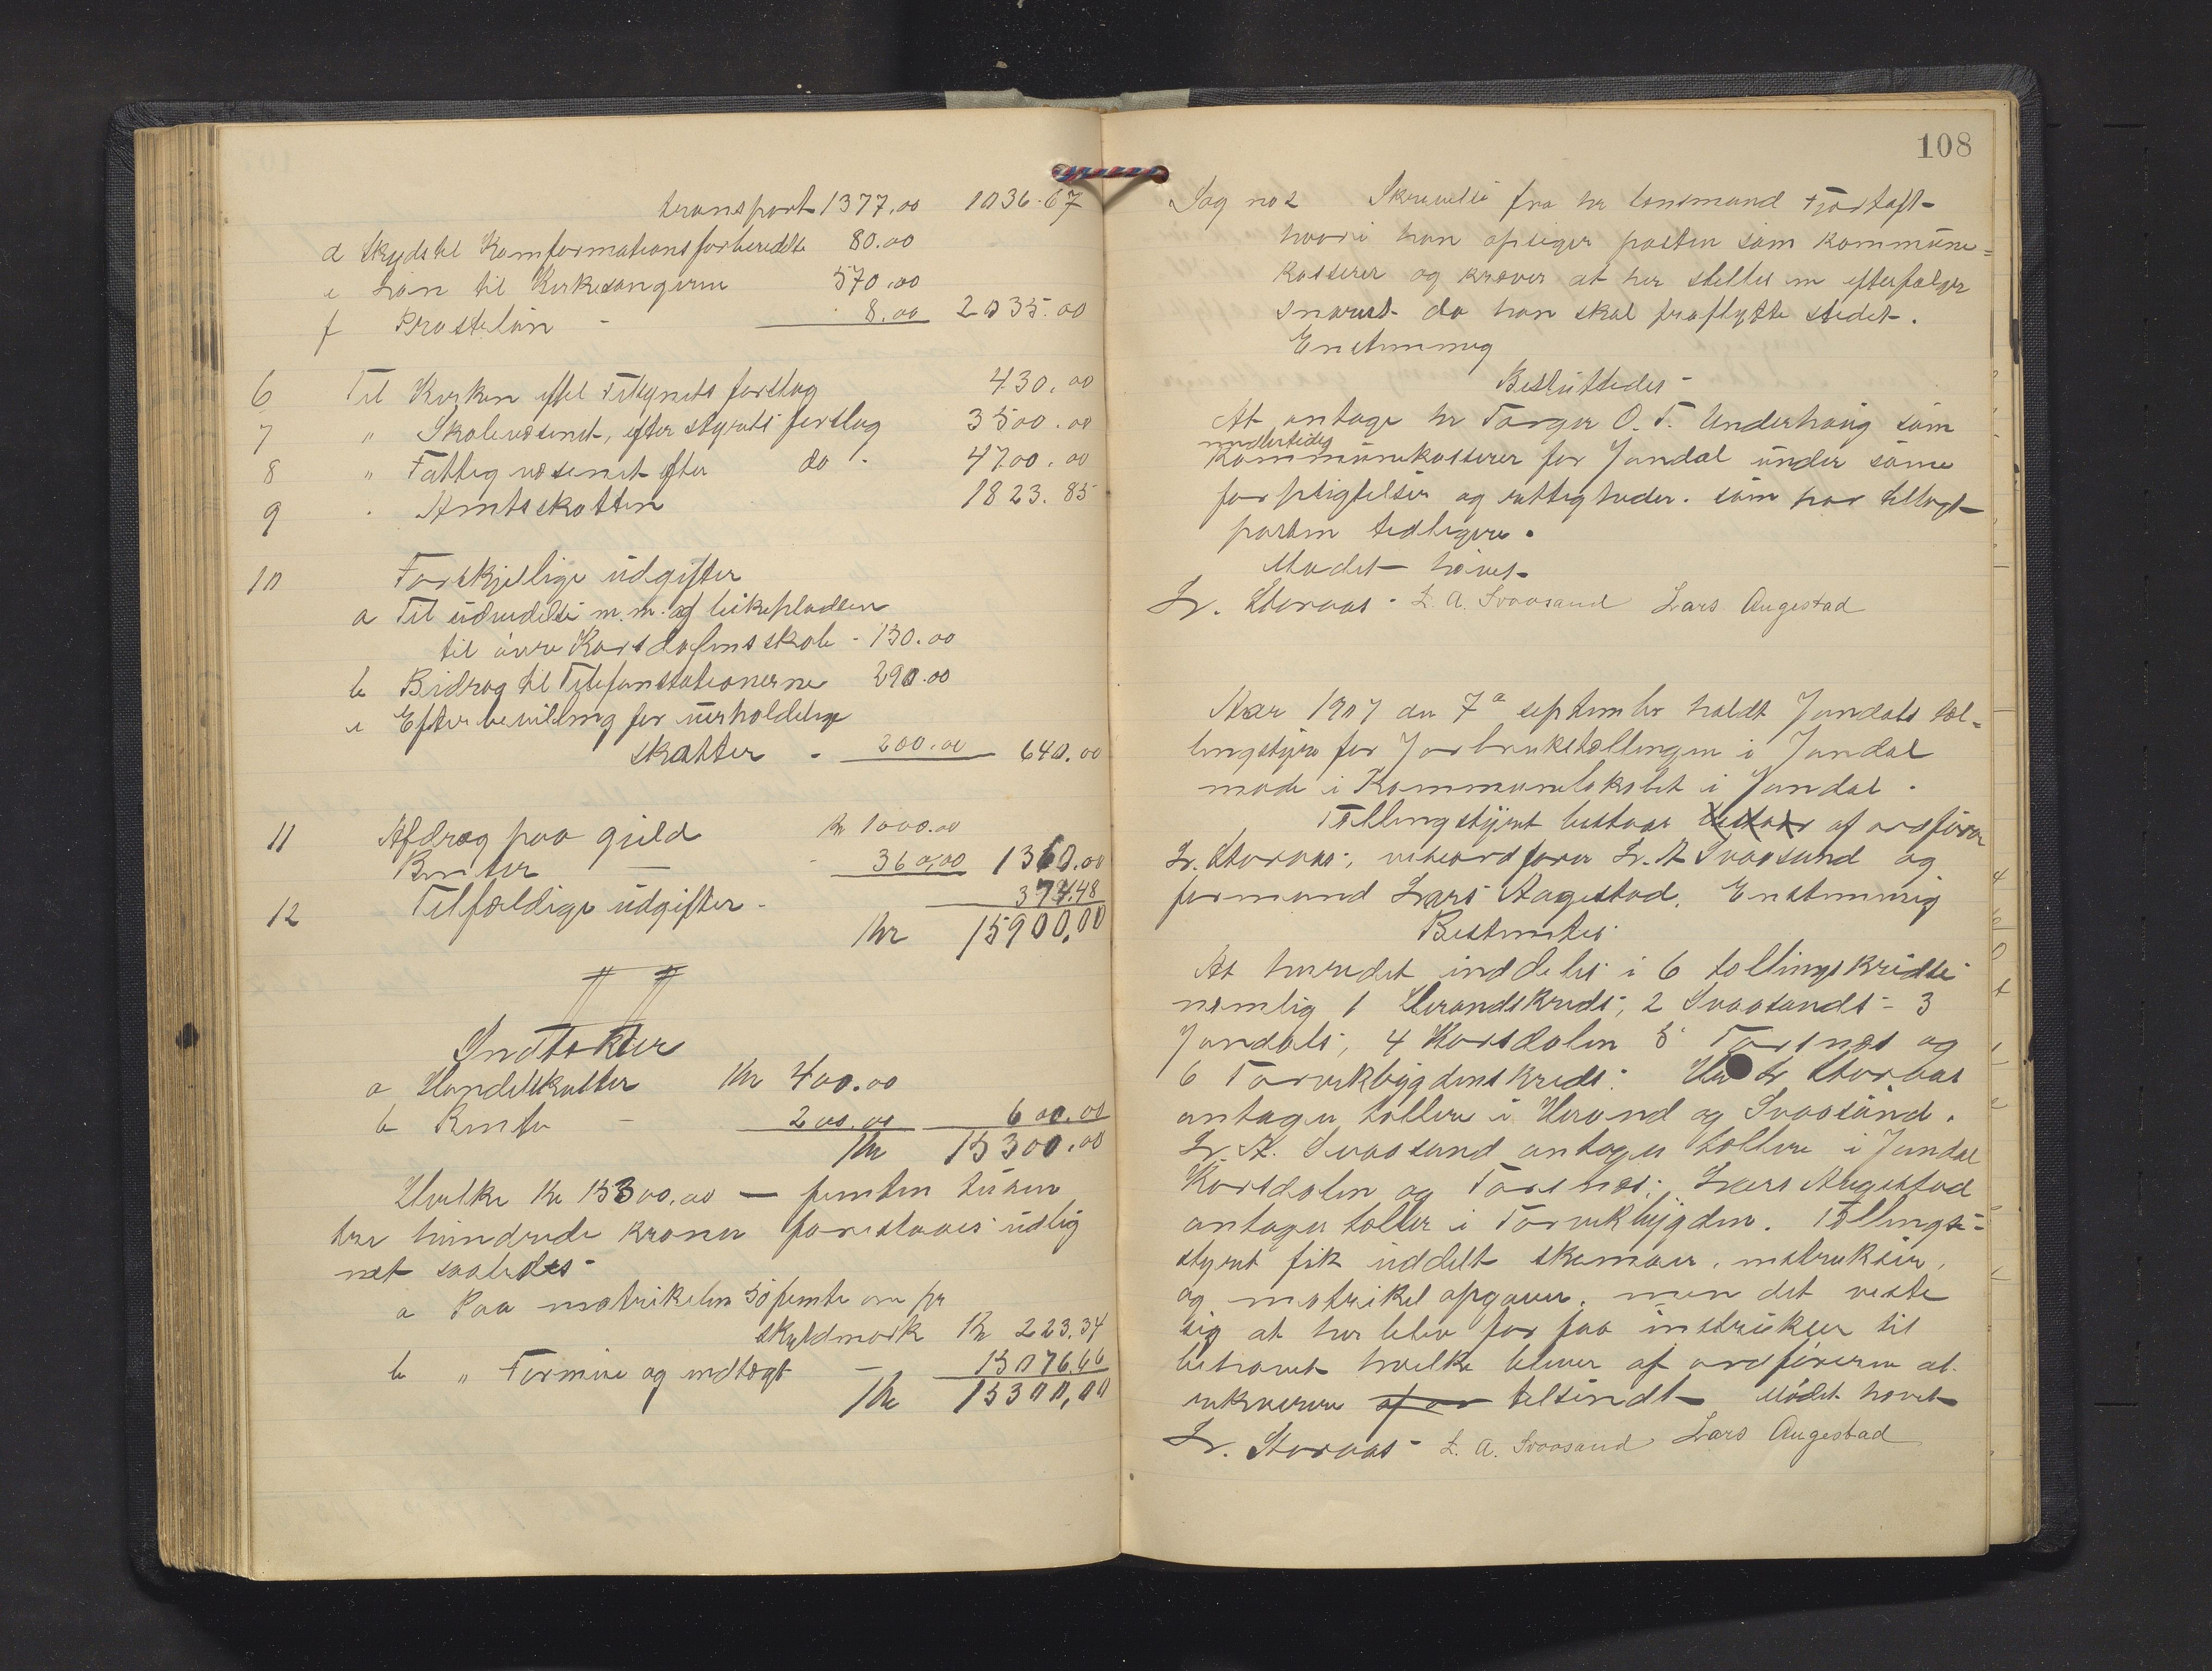 transport 1377,00 1036.67
d Skyds til Komformationsforberedelse 80.00
e Løn til Kirkesangerne 570,00
f Prosteløn - 8,00 2035.00
6 Til Kirken efter Tilsynets forslag 430,00
7 " Skolevæsenet, efter styrets forslag 3500.00
8 " Fattigvæsenet efter do - 4700,00
9 - Amtsskatten 1823.85
10 Forskjellige udgifter
a Til udvidelse m.m. af leikepladsen
til øvre Korsdalens skole - 150.00
b Bidrag til Telefonstationerne 290.00
c Efterbevilling for uerholdelige
skatter - 200,00 640.00
11 Afdrag paa gjeld kr 1000.00
Renter - 360,00 1360.00
12 Tilfældige udgifter - 374.48
Kr 15900,00
Indtækter
a Handelskatter Kr 400.00
b Renter - 200.00 600.00
Kr 15300.00
Hvilke Kr 15300,00 — femten tusen
tre hundrede kroner foreslaaes udlig
net saaledes
a Paa matrikelen 50 femti øre pr
skyldmark Kr 223.34
b " Formue og indtægt - 15076.66
Kr 15300,00
108
Sag no 2 Skrivelse fra hr lensmand Tjortoft
hvori han opsiger posten som kommune-
kasserer og kræver at her stilles en efterfølger
snarest da han skal fraflytte stedet.
Enstemmig
Besluttedes
At antage hr Torger O. T. Underhaug som
midlertidig
Kommunekasserer for Jondal under same
forpligtelser og rettigheder som har tillagt
posten tidligere.
Mødet hævet
Lr. Storaas - L. A. Svaasand Lars Augestad
Aar 1907 den 7de september holdt Jondals tæl-
lingstyre for Jorbrukstællingen i Jondal
møde i Kommunelokalet i Jondal.
Tællingstyret bestaar bestaar af ordfører
Lr. Storaas, viseordfører L. A Svaasand og
formand Lars Augestad. Enstemmig
Bestemtes
At heredet inddeles i 6 tællingskredse
nemlig 1 Herandskreds, 2 Svaasands - 3
Jondals, 4 Korsdalen 5 Torsnes og
6 Torvikbygdens kreds. Hr Lr Storaas
antager tællere i Herand og Svaasand.
L. A. Svaasand antager tællere i Jondal
Korsdalen og Torsnes; Lars Augestad
antager tæller i Torvikbygden. Tællings-
styret fik uddelt skemaer, instrukser,
og matrikel opgaver, men det viste
sig at her blev for faa instrukser til
behovet hvilke bliver af ordføreren at
rekverere af or tilsendt Mødet hævet
Lr. Storaas - L. A. Svaasand Lars Augestad